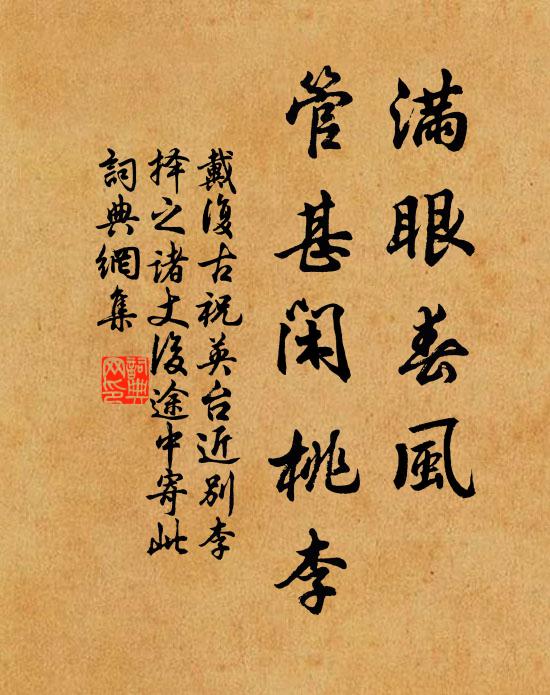 滿眼春風
管甚閑桃李
戴復古祝英台近別李
择之诸丈後途中寄此
詞典網集
詞典
网印